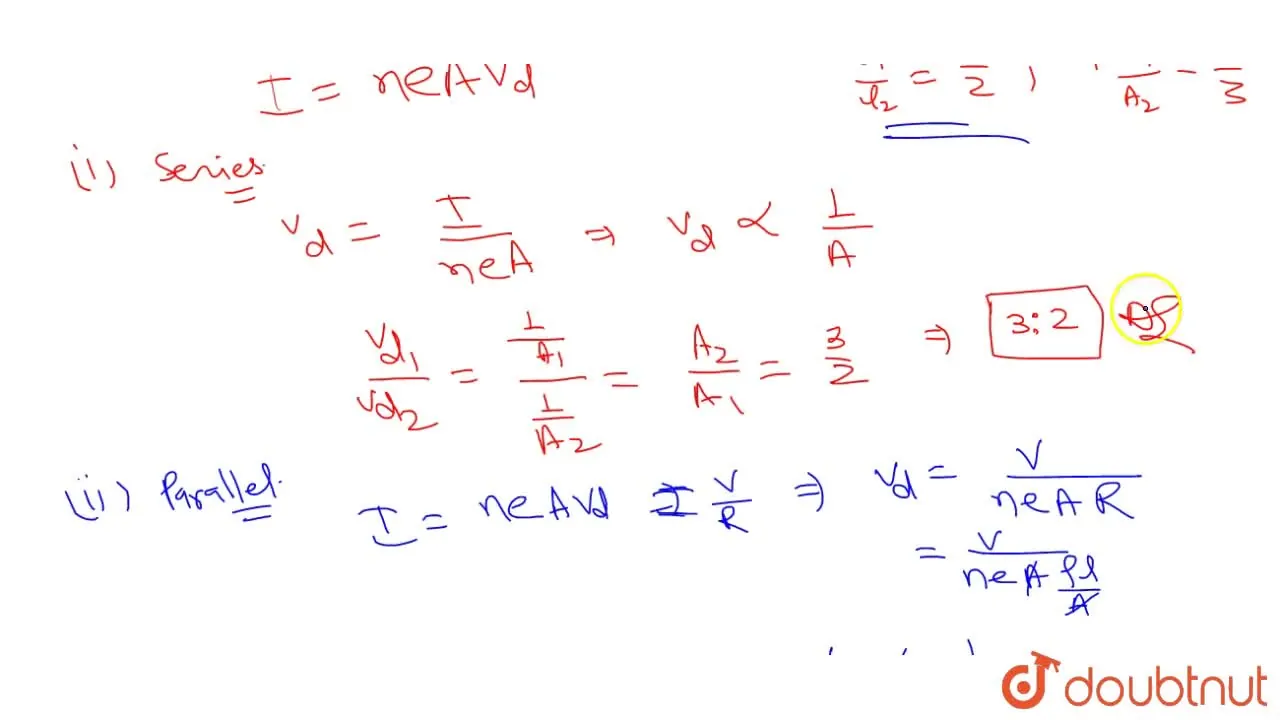 I = neAVd
l2 = 2 , A2 - 3
(i) Series
Vd = I/neA ⇒ Vd ∝ 1/A
Vd1/Vd2 = (1/A1)/(1/A2) = A2/A1 = 3/2 ⇒ 3:2
(ii) Parallel.
I = neAVd = V/R ⇒ Vd = V/neAR
= V/neA ρl/A
doubtnut